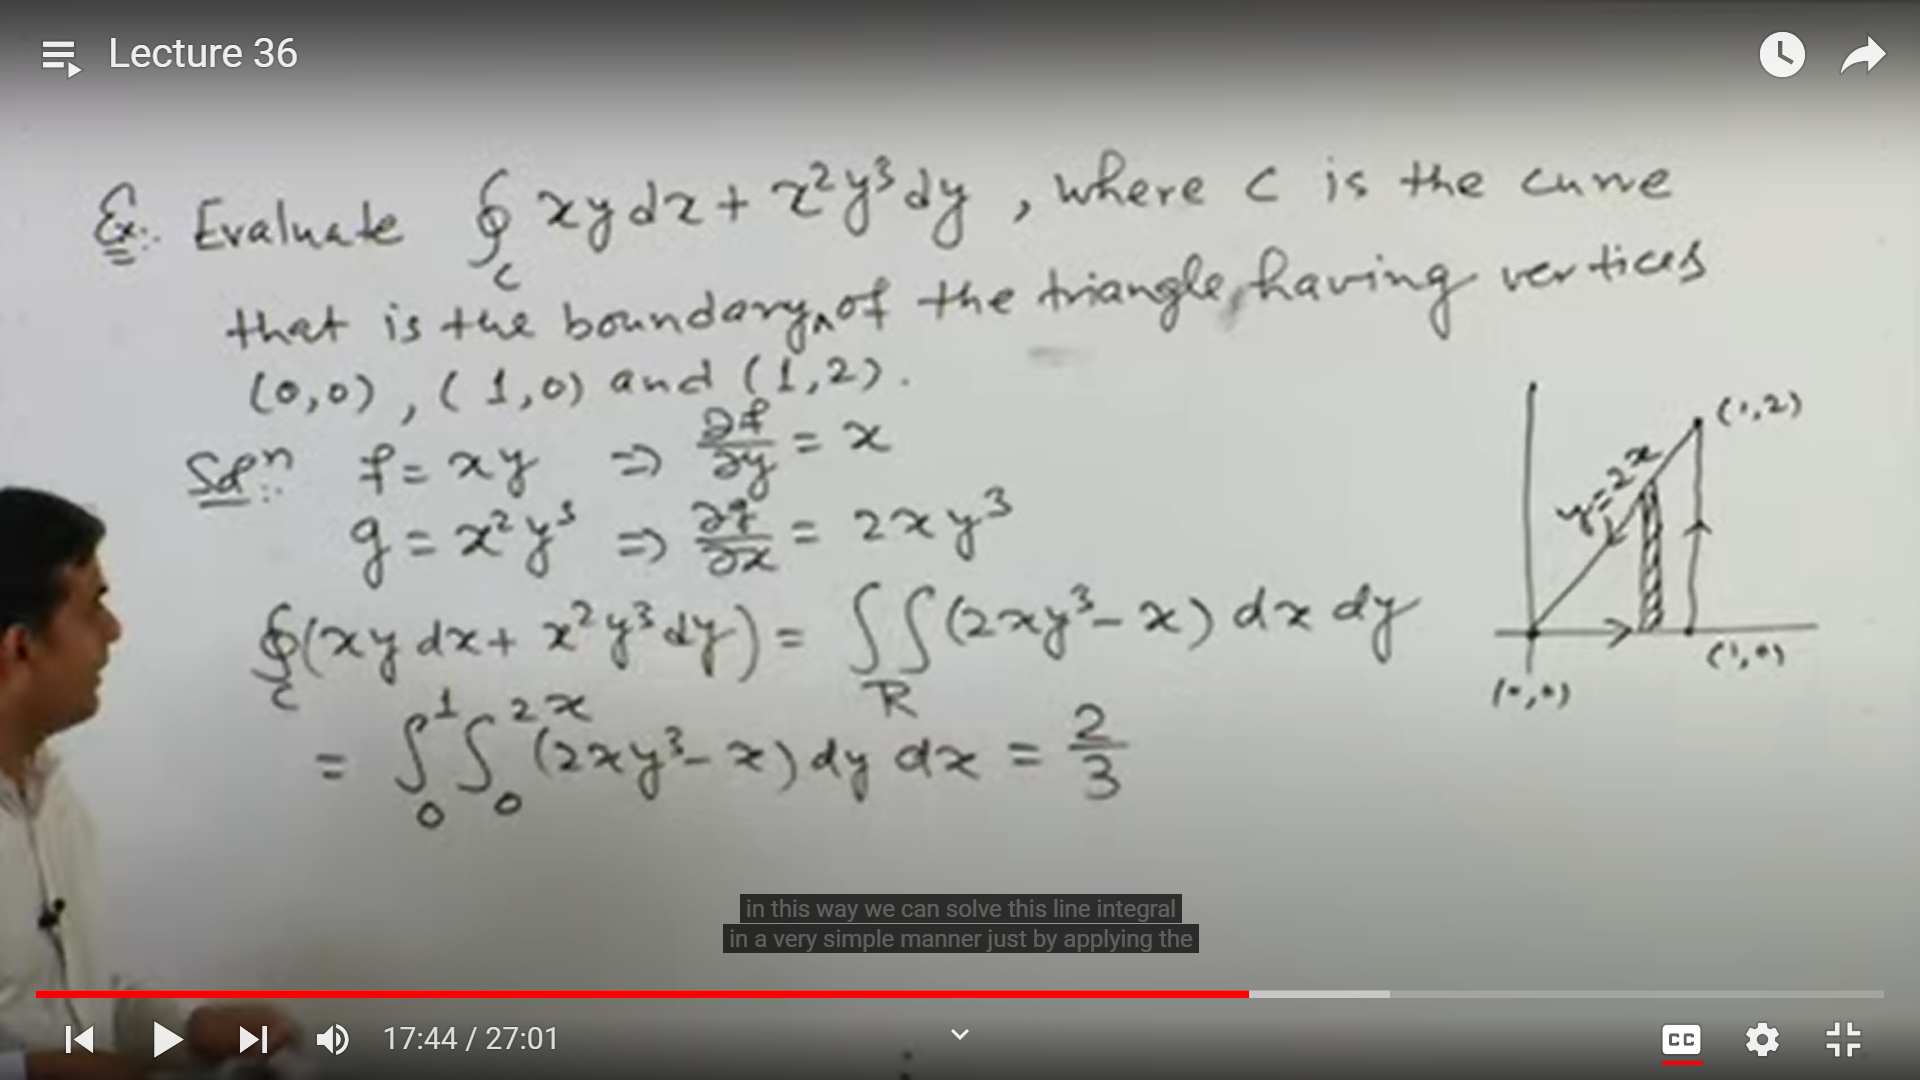 Lecture 36
Ex:. Evaluate ∮_C xy dx + x²y³ dy , where C is the curve
that is the boundary of the triangle, having vertices
(0,0) , (1,0) and (1,2).
Solⁿ:. f = xy ⇒ ∂f/∂y = x
g = x²y³ ⇒ ∂g/∂x = 2xy³
∮_C (xy dx + x²y³ dy) = ∫∫_R (2xy³ - x) dx dy
= ∫₀¹ ∫₀²ˣ (2xy³ - x) dy dx = 2/3
(1,2)
y = 2x
(1,0)
(0,0)
in this way we can solve this line integral
in a very simple manner just by applying the
17:44 / 27:01
CC